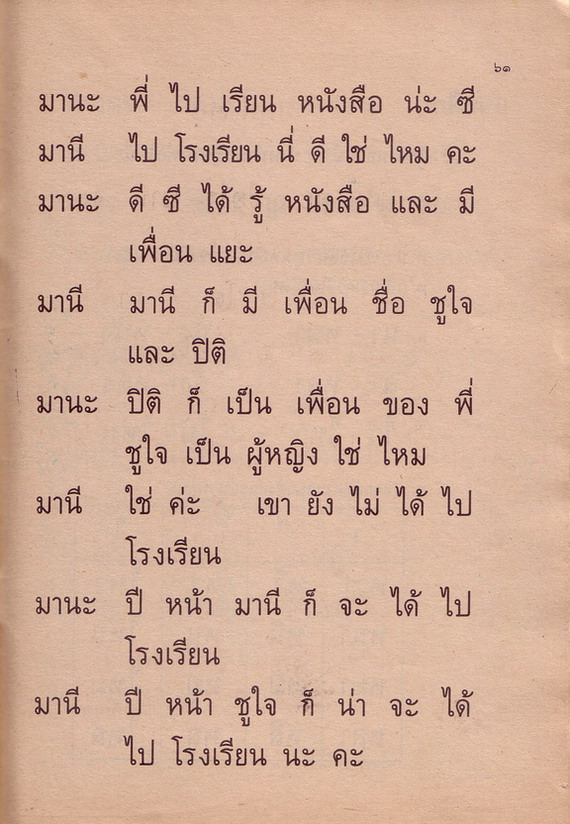 ๖๑
มานะ พี่ ไป เรียน หนังสือ น่ะ ซี
มานี ไป โรงเรียน นี่ ดี ใช่ ไหม คะ
มานะ ดี ซี ได้ รู้ หนังสือ และ มี
เพื่อน แยะ
มานี มานี ก็ มี เพื่อน ชื่อ ชูใจ
และ ปิติ
มานะ ปิติ ก็ เป็น เพื่อน ของ พี่
ชูใจ เป็น ผู้หญิง ใช่ ไหม
มานี ใช่ ค่ะ เขา ยัง ไม่ ได้ ไป
โรงเรียน
มานะ ปี หน้า มานี ก็ จะ ได้ ไป
โรงเรียน
มานี ปี หน้า ชูใจ ก็ น่า จะ ได้
ไป โรงเรียน นะ คะ